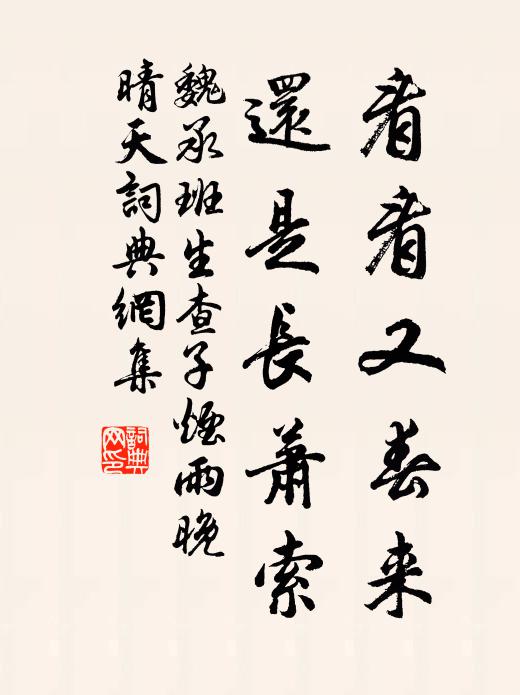 看看又春来
還是長蕭索
魏承班生查子煙雨晚
晴天詞典網集
詞典网印